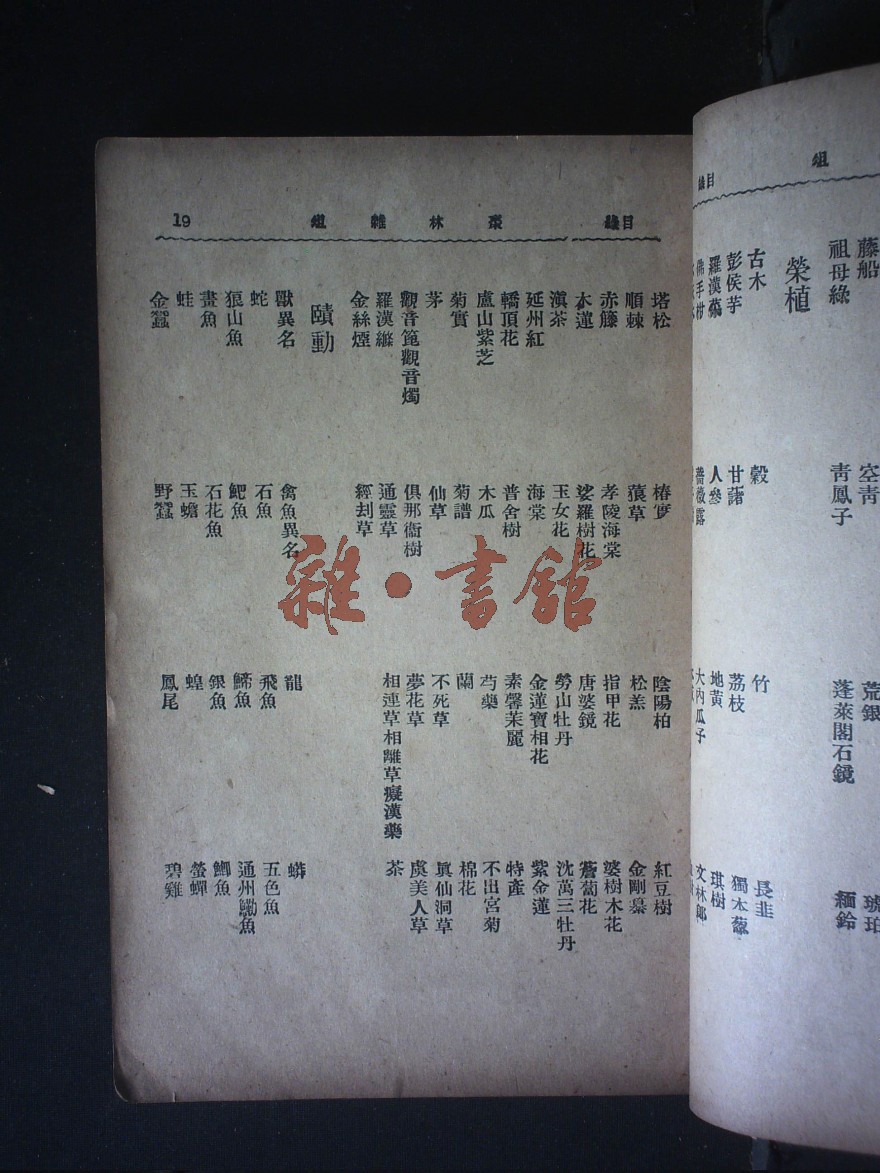 目錄
組
藤船 空青 荒銀 琥珀
祖母綠 青鳳子 蓬萊閣石鏡 緬鈴
榮植
古木 穀 竹 長韭
彭侯芋 甘藷 荔枝 獨本葱
羅漢 人參 地黃 琪樹
佛手柑 薔薇露 大內瓜子 文林郎
目錄 棗林雜俎 19
塔松 椿寔 陰陽柏 紅豆樹
順棘 蒗草 松羔 金剛纂
赤籐 孝陵海棠 指甲花 婆樹木花
木蓮 娑羅樹花 唐婆鏡 薝蔔花
滇茶 玉女花 勞山牡丹 沈萬三牡丹
延州紅 海棠 金蓮寶相花 紫金蓮
轎頂花 普舍樹 素馨茉麗 特產
盧山紫芝 木瓜 芍藥 不出宮菊
菊實 菊譜 蘭 棉花
茅 仙草 不死草 眞仙洞草
觀音篦觀音燭 俱那衞樹 夢花草 虞美人草
羅漢縧 通靈草 相連草相離草癡漢藥 茶
金絲煙 經刦草
賾動
獸異名 禽魚異名 龍 蟒
蛇 石魚 飛魚 五色魚
狼山魚 魚 魚 通州鰳魚
畫魚 石花魚 銀魚 鯽魚
蛙 玉蟾 蝗 螢蟬
金蠶 野蠶 鳳尾 碧雞
雜·書館